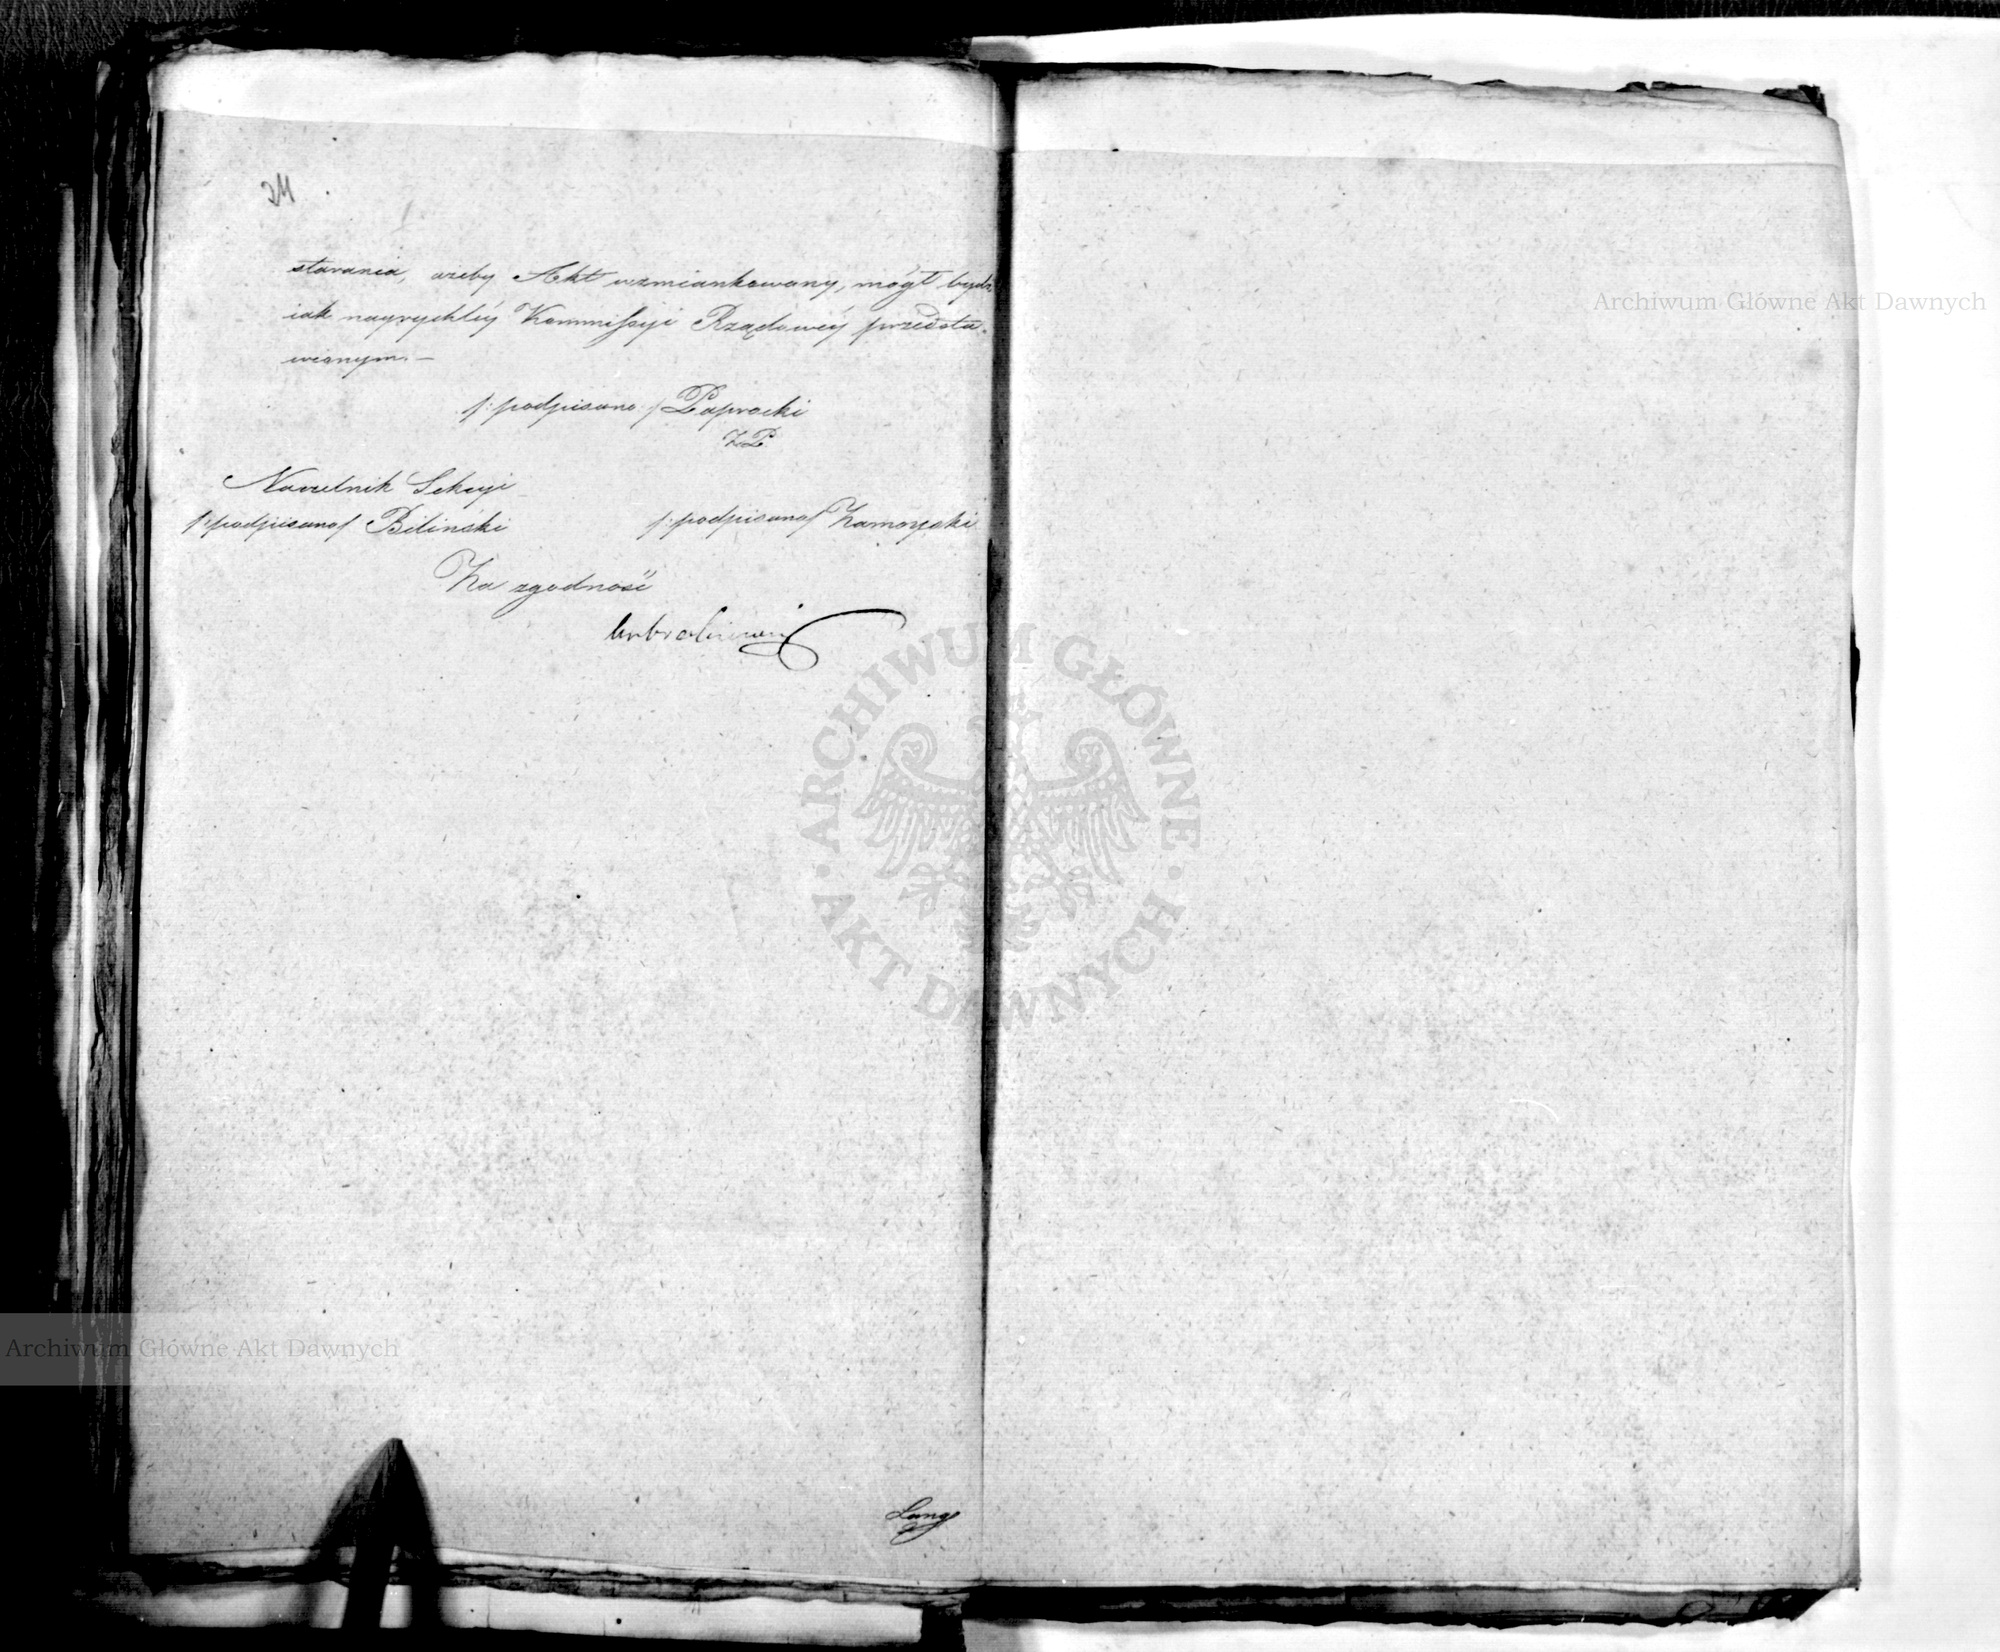 34
starania, ażeby Akt wzmiankowany, mógł bydź
iak nayrychléy Kommissyi Rządowéy przedsta-
wionym. –
/:podpisano:/ Paprocki
Z.P.
Naczelnik Sekcyi
/:podpisano/ Biliński /:podpisano/ Zamoyski
Za zgodność
Lang
Archiwum Główne Akt Dawnych
Archiwum Główne Akt Dawnych
ARCHIWUM GŁÓWNE · AKT DAWNYCH ·